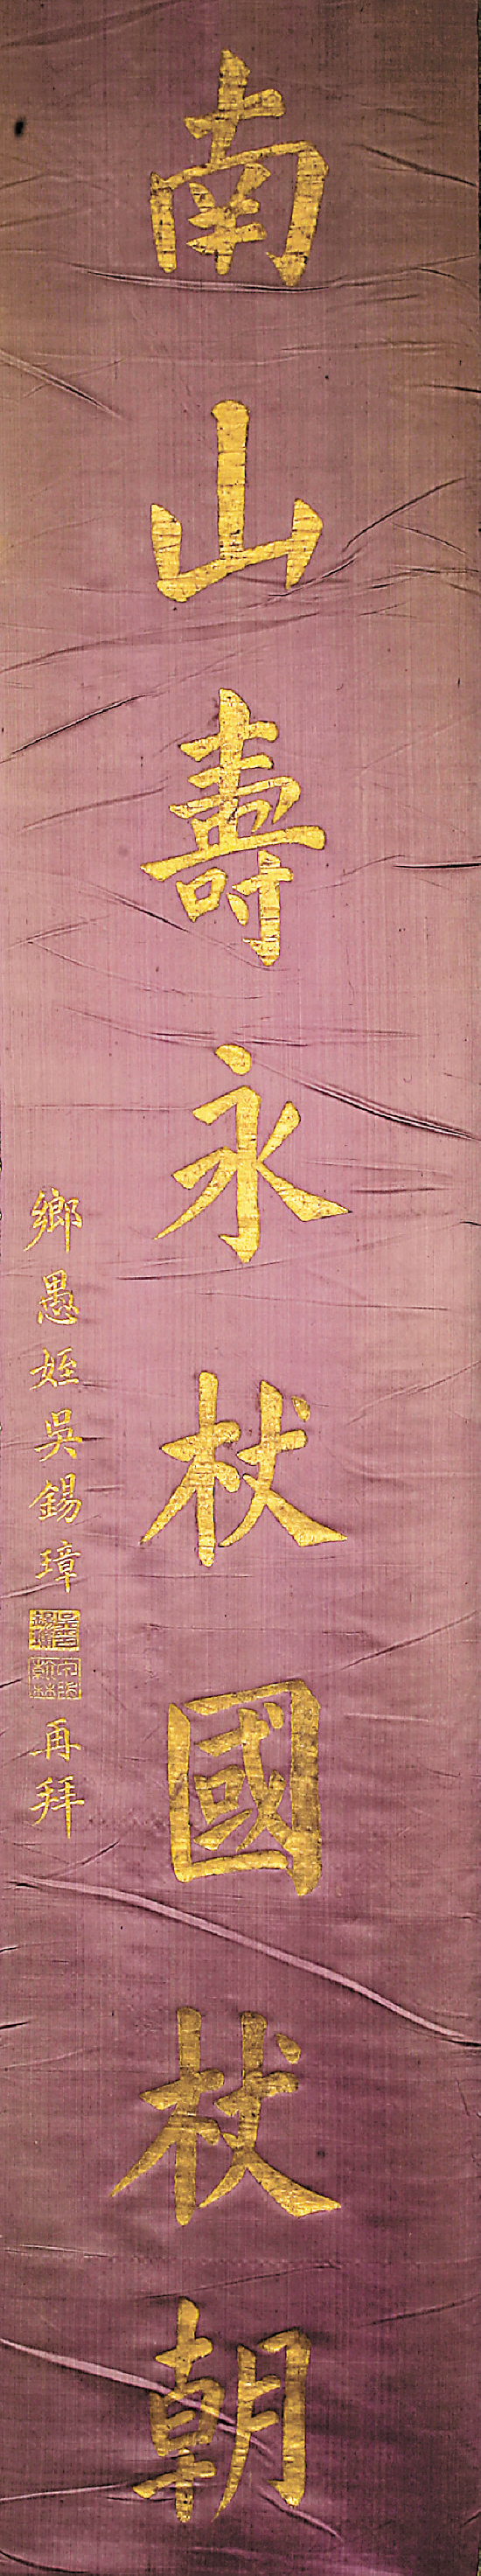 南山壽永杖國杖朝
鄉愚姪吳錫璋
再拜